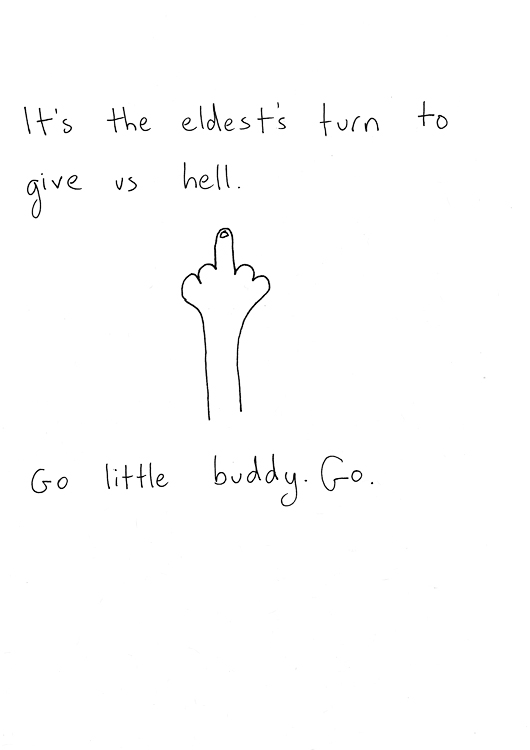 It's the eldest's turn to
give us hell.
Go little buddy. Go.